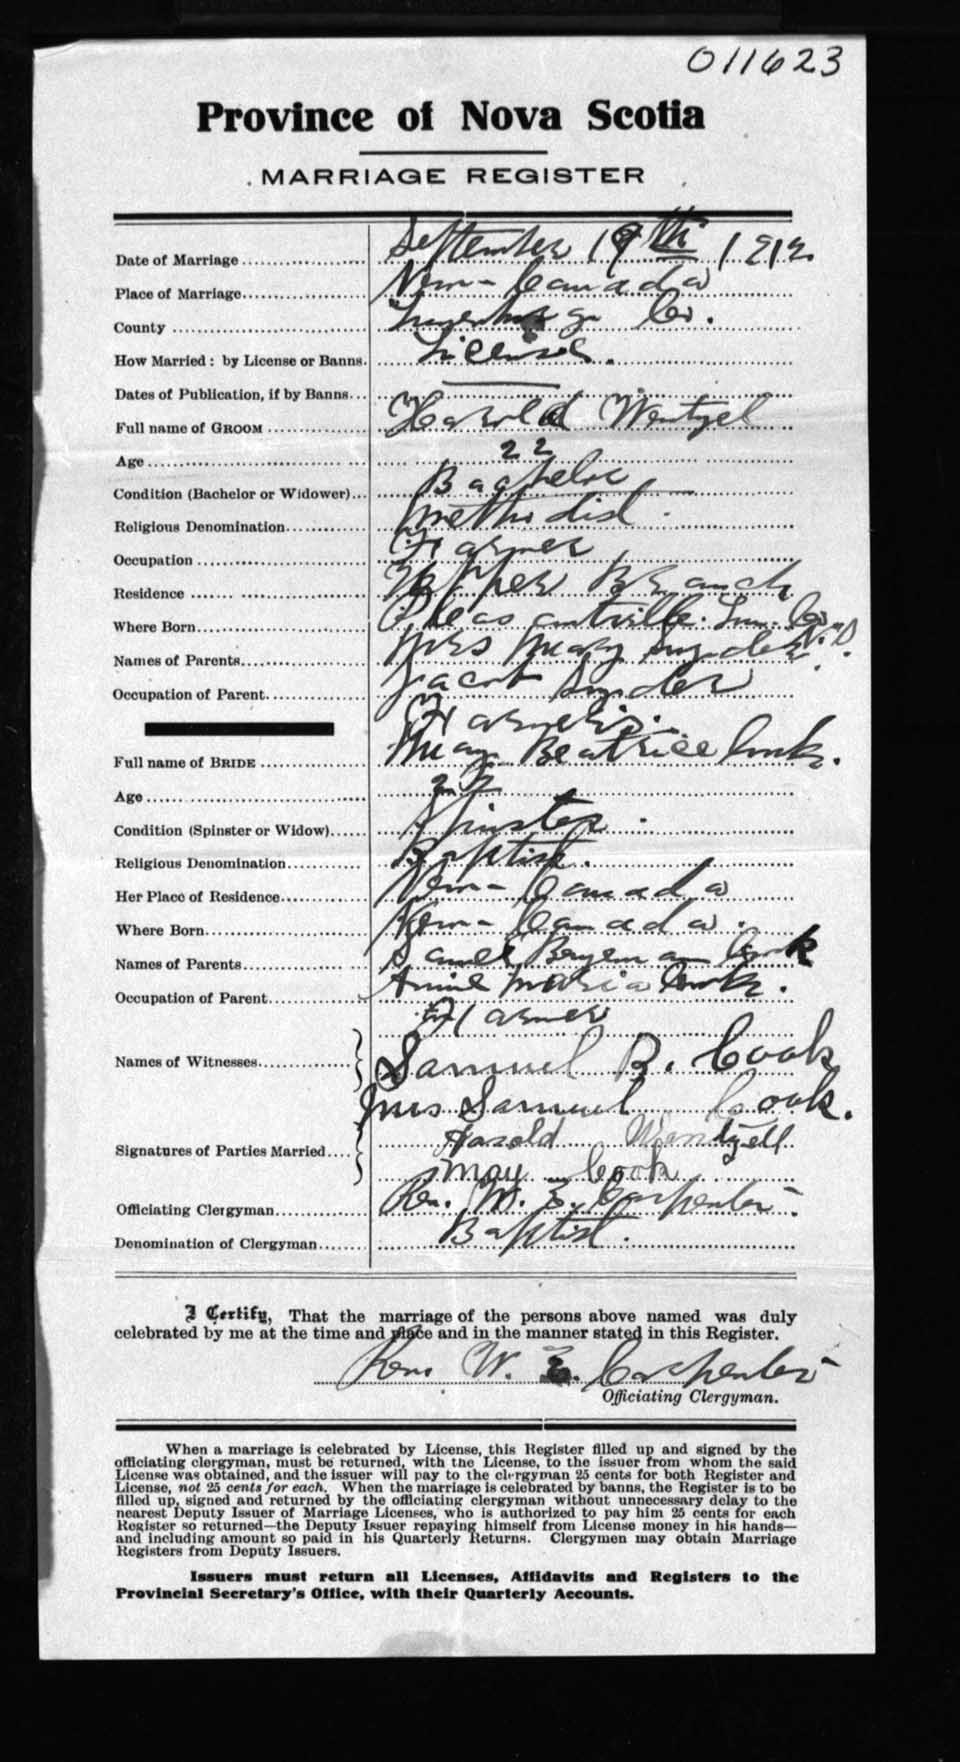 011623
Province of Nova Scotia
MARRIAGE REGISTER
Date of Marriage September 19th 1912.
Place of Marriage New-Canada
County Co.
How Married: by License or Banns. License.
Dates of Publication, if by Banns
Full name of GROOM Harold Wentzel
Age 22
Condition (Bachelor or Widower) Bachelor
Religious Denomination Methodist.
Occupation Farmer
Residence Branch
Where Born Pleasantville. Lun. Co. N.S.
Names of Parents Mrs Mary Snyder.
Occupation of Parent Jacob Snyder
Full name of BRIDE May Beatrice Cook.
Age
Condition (Spinster or Widow) Spinster.
Religious Denomination Baptist.
Her Place of Residence New-Canada
Where Born New-Canada.
Names of Parents Cook
Occupation of Parent Annie Maria Cook.
Farmer
Names of Witnesses Samuel B. Cook
Mrs Samuel Cook.
Signatures of Parties Married Harold Wentzell
May Cook
Officiating Clergyman Rev. W. E. Carpenter.
Denomination of Clergyman Baptist.
I Certify, That the marriage of the persons above named was duly
celebrated by me at the time and place and in the manner stated in this Register.
Rev. W. E. Carpenter
Officiating Clergyman.
When a marriage is celebrated by License, this Register filled up and signed by the
officiating clergyman, must be returned, with the License, to the issuer from whom the said
License was obtained, and the issuer will pay to the clergyman 25 cents for both Register and
License, not 25 cents for each. When the marriage is celebrated by banns, the Register is to be
filled up, signed and returned by the officiating clergyman without unnecessary delay to the
nearest Deputy Issuer of Marriage Licenses, who is authorized to pay him 25 cents for each
Register so returned—the Deputy Issuer repaying himself from License money in his hands—
and including amount so paid in his Quarterly Returns. Clergymen may obtain Marriage
Registers from Deputy Issuers.
Issuers must return all Licenses, Affidavits and Registers to the
Provincial Secretary's Office, with their Quarterly Accounts.